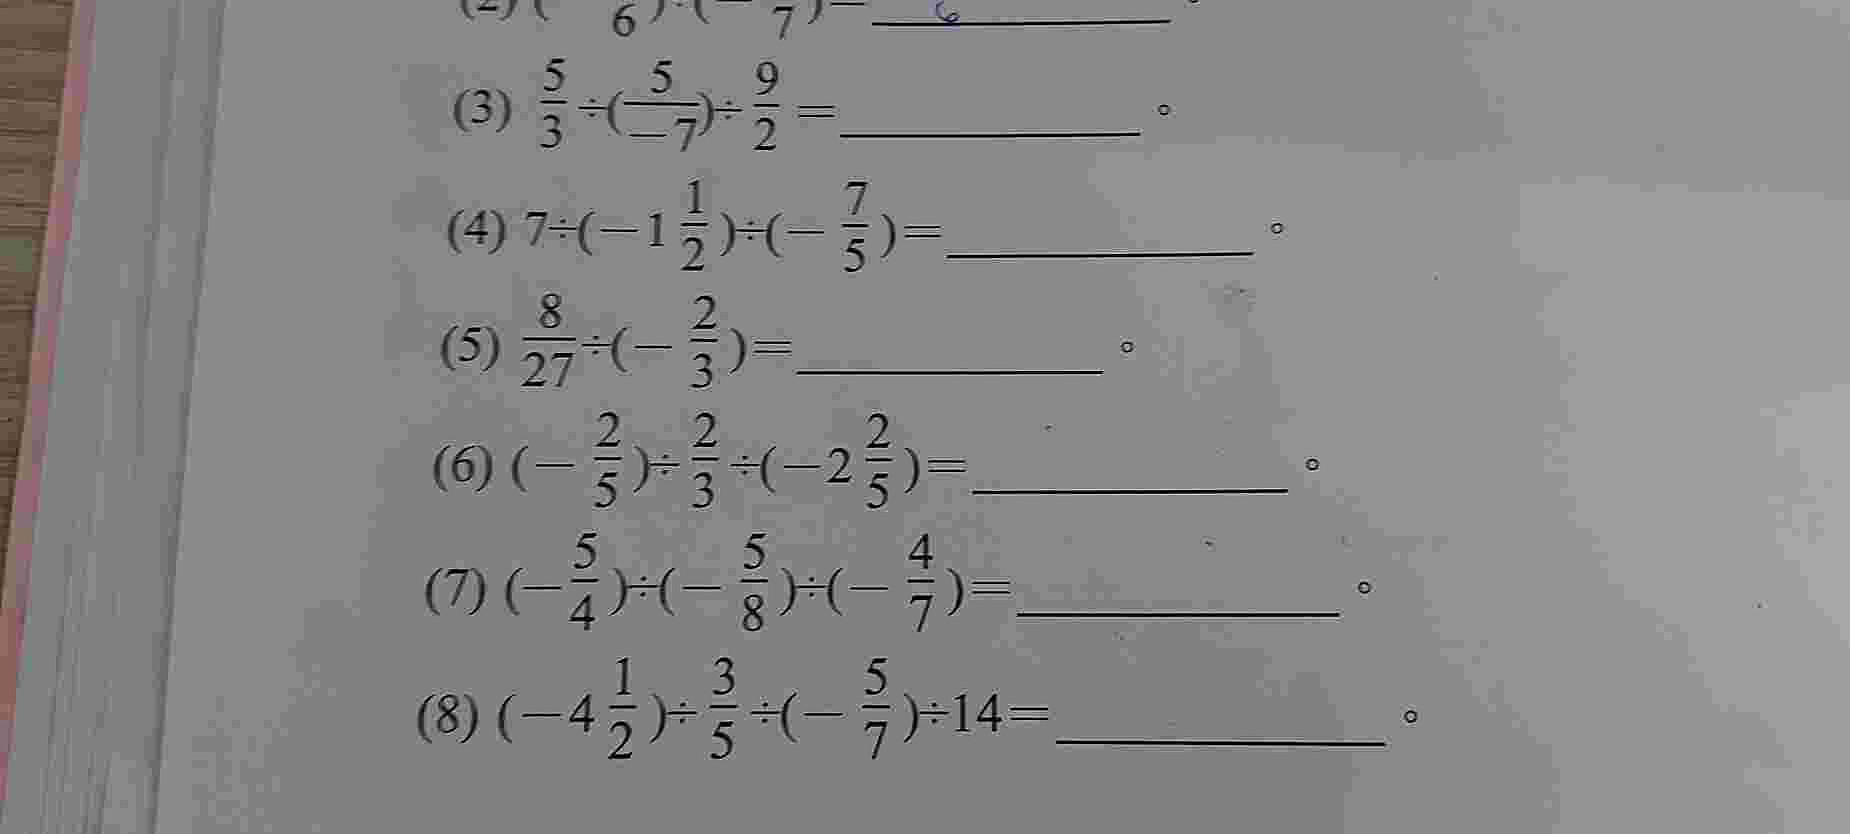 (2) ( 6 )÷(− 7 )=______。
(3) 5/3 ÷(5/−7)÷ 9/2 =______。
(4) 7÷(−1 1/2)÷(− 7/5)=______。
(5) 8/27 ÷(− 2/3)=______。
(6) (− 2/5)÷ 2/3 ÷(−2 2/5)=______。
(7) (− 5/4)÷(− 5/8)÷(− 4/7)=______。
(8) (−4 1/2)÷ 3/5 ÷(− 5/7)÷14=______。